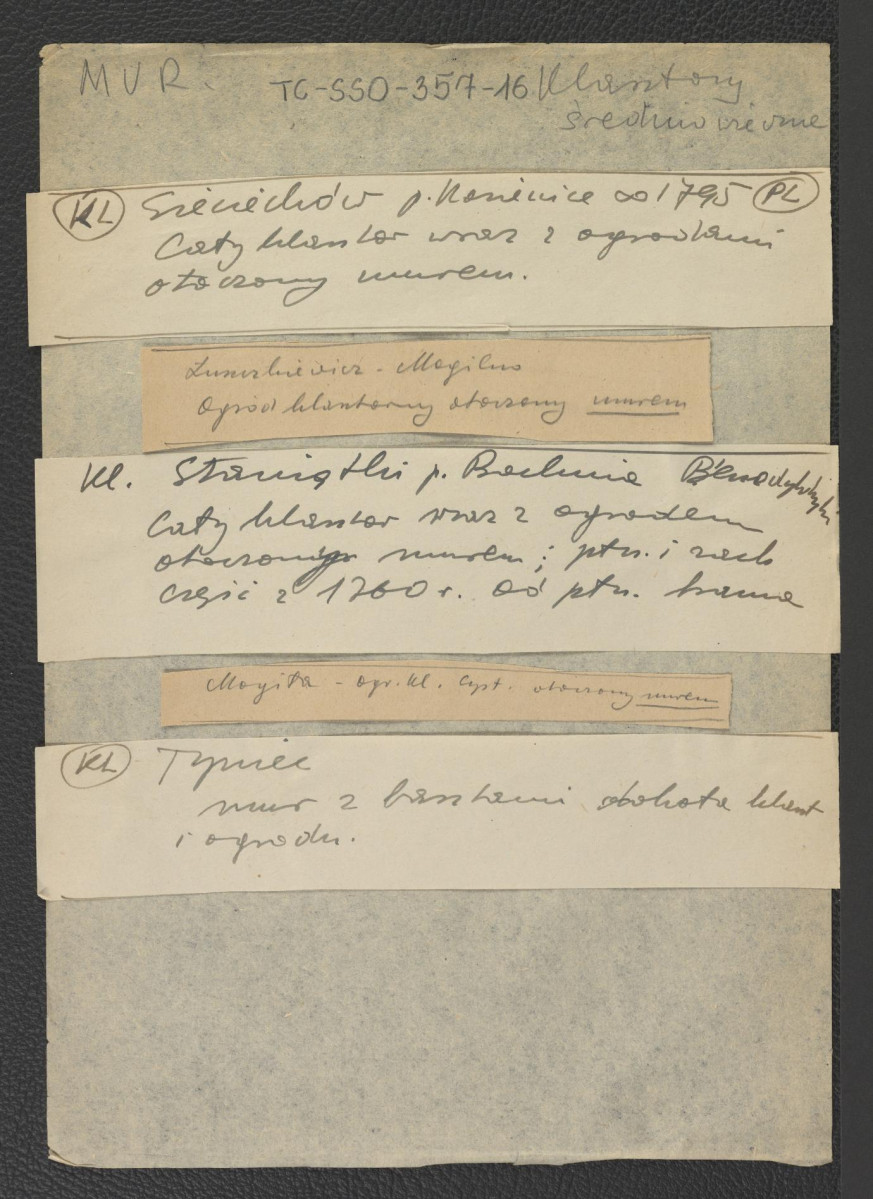 MUR. TC-SSO-357-16 Klasztory
średniowieczne
KL Sieciechów p. Kozienice 1795 PL
Cały klasztor wraz z ogrodami
otoczony murem.
Łuszczkiewicz - Mogilno
Ogród klasztorny otoczony murem
Kl. Staniątki p. Bochnia Benedyktynki
Cały klasztor wraz z ogrodem
otoczony murem; płn. i zach
część z 1760 r. od płn. brama
Mogiła - ogr. kl. Cyst. otoczony murem
KL Tyniec
mur z basztami dokoła klaszt
i ogrodu.